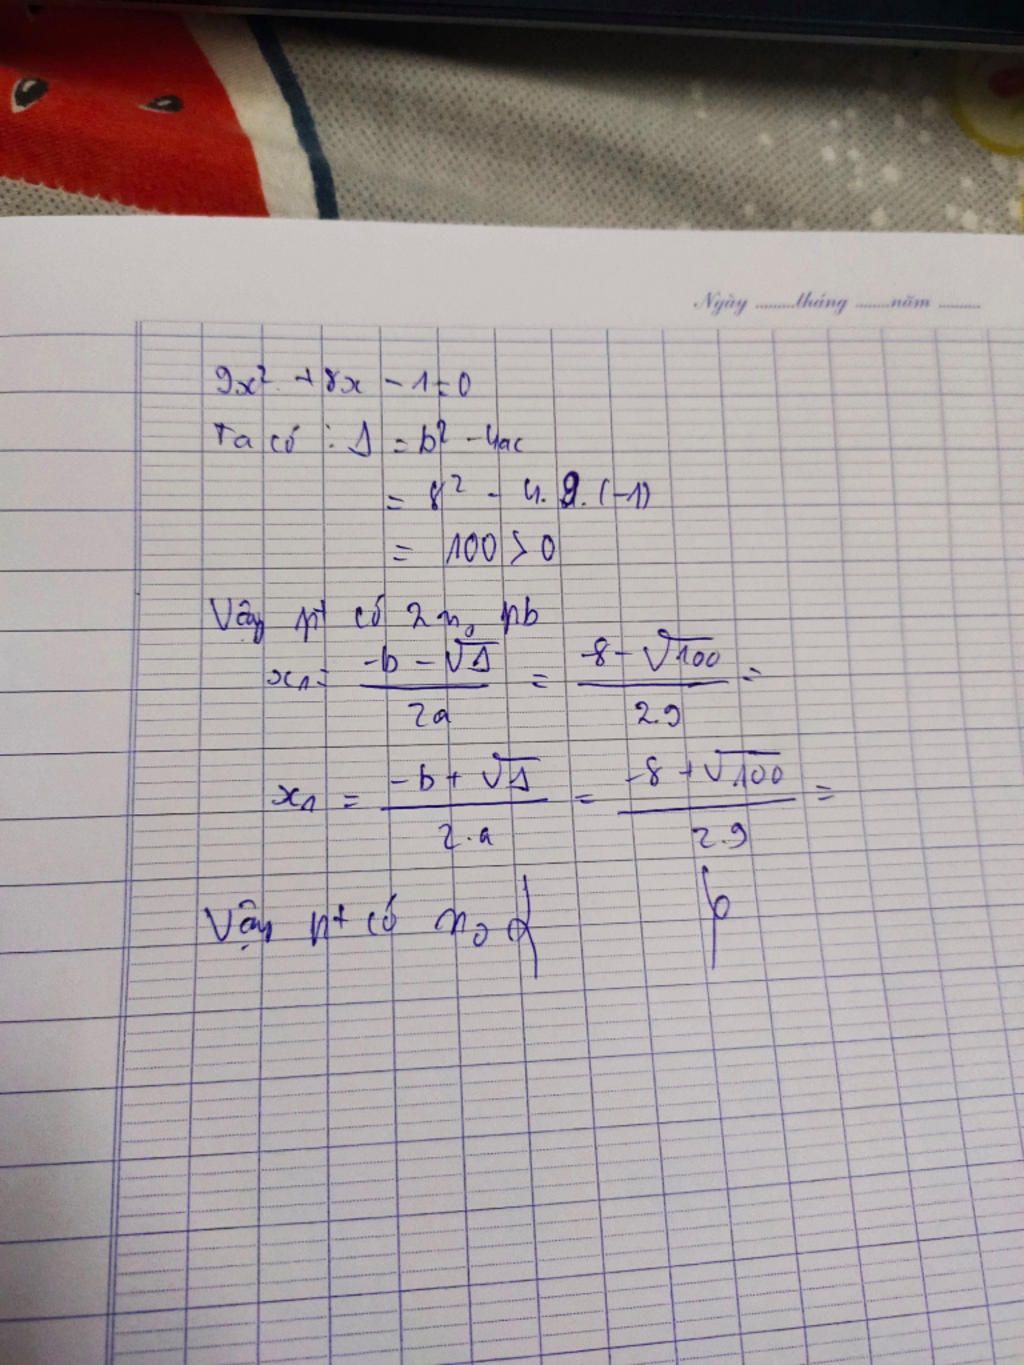 Ngày ......... tháng ....... năm .........
9x² + 8x - 1 = 0
Ta có : Δ = b² - 4ac
= 8² - 4.9.(-1)
= 100 > 0
Vậy pt có 2 n₀ pb
x₁ = (-b - √Δ)/2a = (-8 - √100)/2.9 =
x₁ = (-b + √Δ)/2.a = (-8 + √100)/2.9 =
Vậy pt có n₀